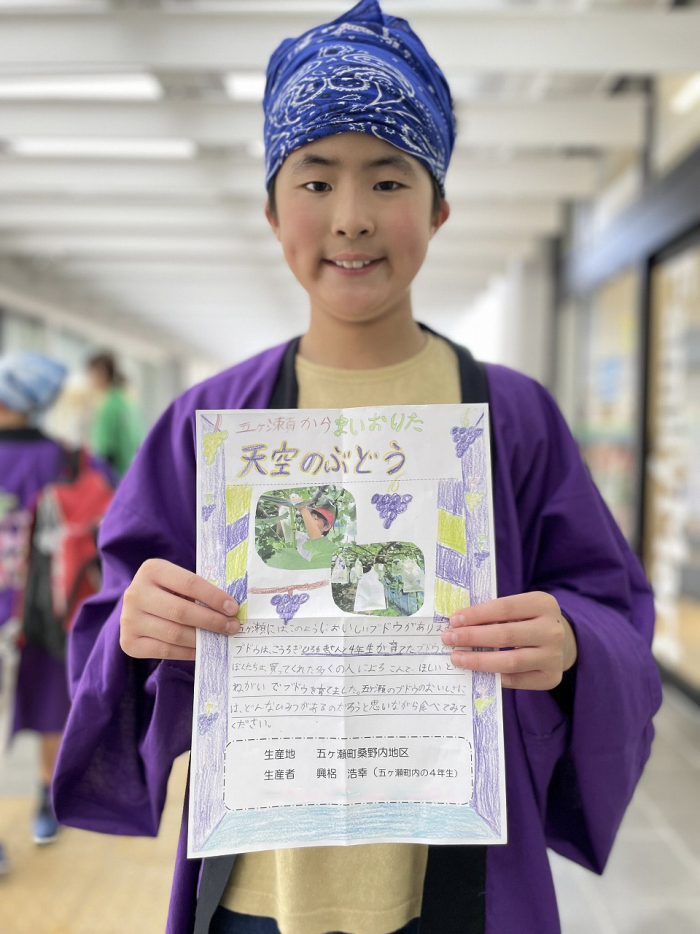 五ヶ瀬からまいおりた
天空のぶどう
五ヶ瀬には、このようにおいしいブドウがあります
ブドウは、こうろぎひろゆきさんと4年生が育てたブドウで
ぼくたちは、買ってくれた多くの人によろこんでほしいと
ねがいでブドウを育てました。五ヶ瀬のブドウのおいしさに
は、どんなひみつがあるのだろうと思いながら食べてみて
ください。
生産地 五ヶ瀬町桑野内地区
生産者 興梠 浩幸（五ヶ瀬町内の４年生）